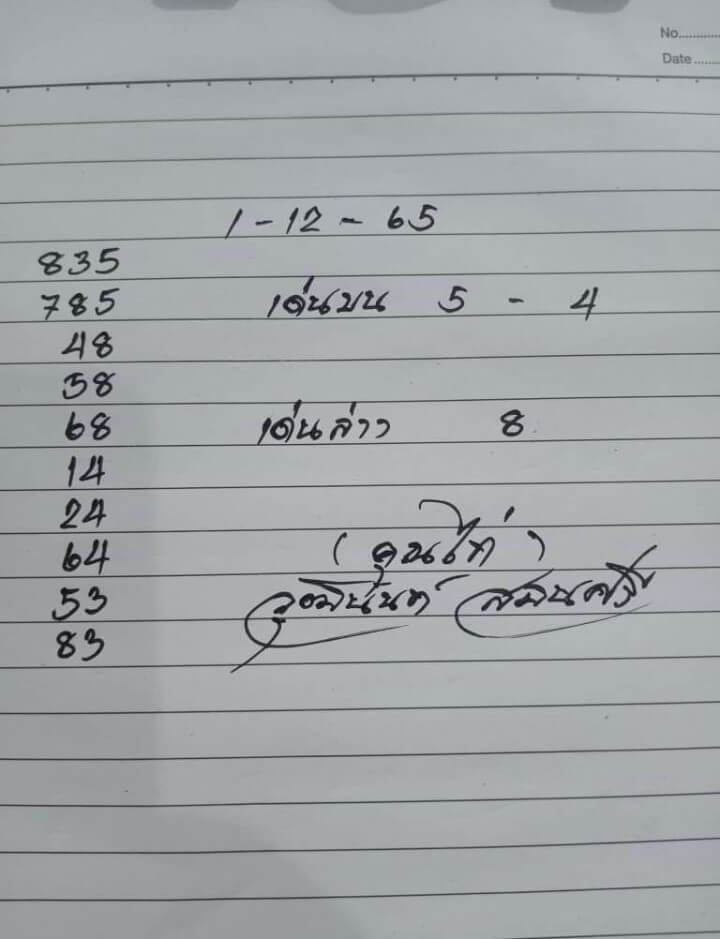 No.
Date
1 - 12 - 65
835
785 เด่นบน 5 - 4
48
58
68 เด่นล่าง 8
14
24
64
53
83